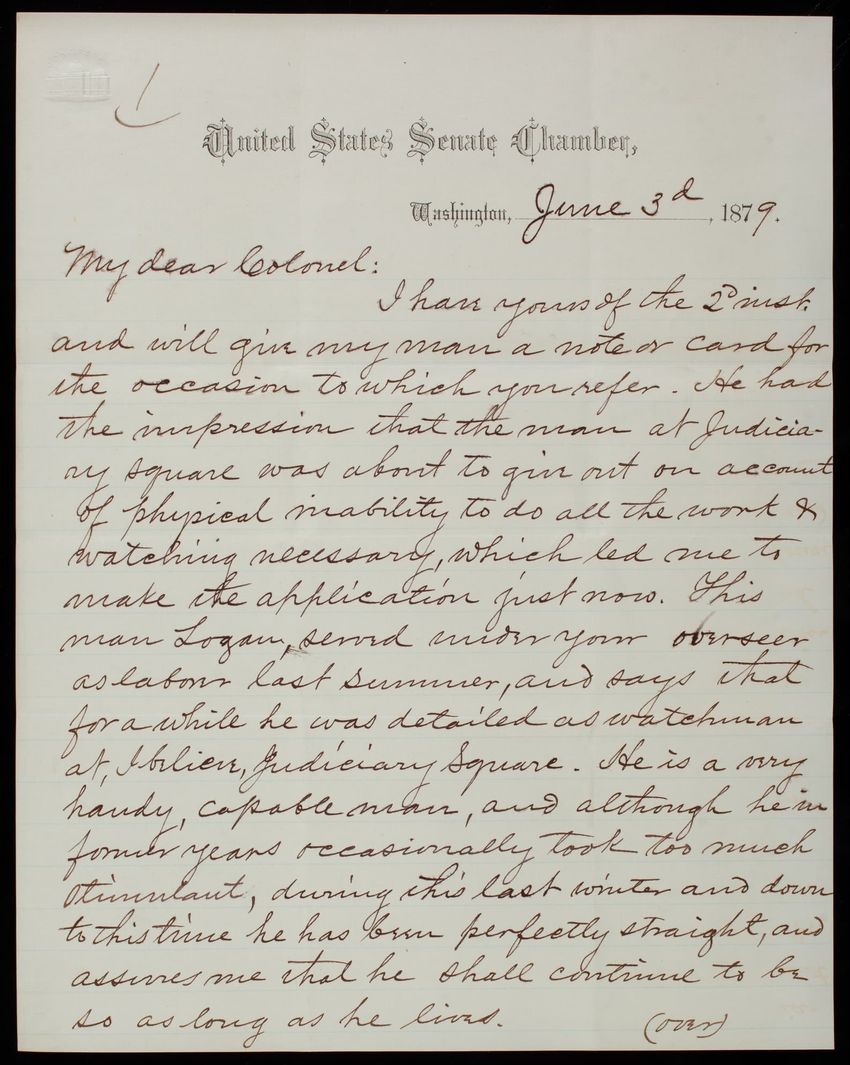 United States Senate Chamber,
Washington, June 3d, 1879.
My dear Colonel:
I have yours of the 2d inst.
and will give my man a note or card for
the occasion to which you refer. He had
the impression that the man at Judicia-
ry square was about to give out on account
of physical inability to do all the work &
watching necessary, which led me to
make the application just now. This
man Logan, served under your overseer
as labour last summer, and says that
for a while he was detailed as watchman
at, I believe, Judiciary Square. He is a very
handy, capable man, and although he in
former years occasionally took too much
stimulant, during this last winter and down
to this time he has been perfectly straight, and
assures me that he shall continue to be
so as long as he lives. (over)